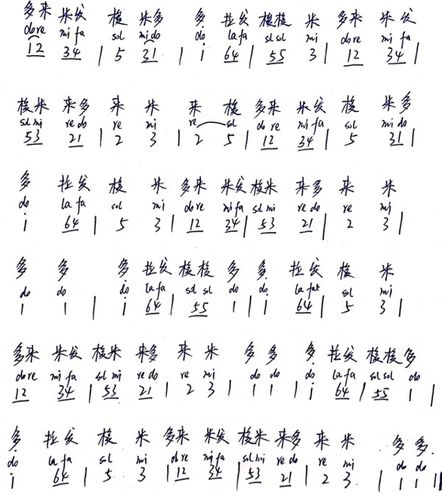 多来 米发 梭 米多 多 拉发 梭梭 米 多来 米发
dore mi fa sol mido do la fa sol sol mi do re mi fa
12 34 | 5 31 | i 64 | 55 3 | 12 34 |
梭米 来多 来 米 来 梭 多来 米发 梭 米多
sol mi re do re mi re sol do re mi fa sol mi do
53 21 | 2 3 | 2 5 | 12 34 | 5 31 |
多 拉发 梭 米 多来 米发 梭米 来多 来 米
do la fa sol mi do re mi fa sol mi re do re mi
i 64 | 5 3 | 12 34 | 53 21 | 2 3 |
多 多 多 拉发 梭梭 多 多 拉发 梭 米
do do do la fa sol sol do do la fa sol mi
1 1 | i 64 | 55 1 | i 64 | 5 3 |
多来 米发 梭米 来多 来 米 多 多 多 拉发 梭梭 多
do re mi fa sol mi re do re mi do do do la fa sol sol do
12 34 | 53 21 | 2 3 | 1 1 | i 64 | 55 1
多 拉发 梭 米 多来 米发 梭米 来多 来 米 多 多
do la fa sol mi do re mi fa sol mi re do re mi do do
i 64 | 5 3 | 12 34 | 53 21 | 2 3 | 1 1 ||